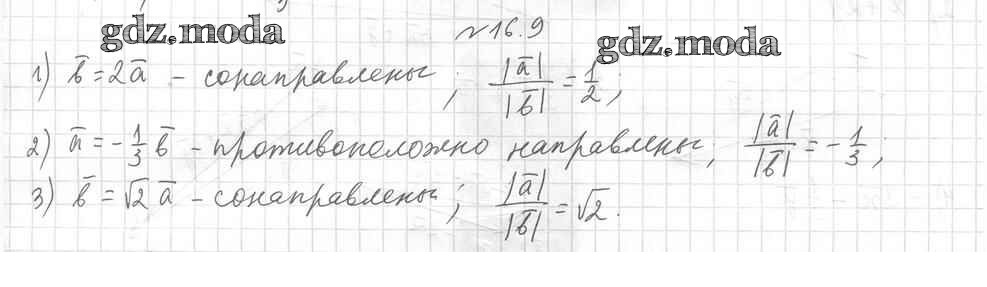 gdz.moda
№16.9
gdz.moda
1) b̄ = 2ā – сонаправлены; |ā|/|b̄| = 1/2;
2) ā = -1/3 b̄ – противоположно направлены; |ā|/|b̄| = -1/3;
3) b̄ = √2 ā – сонаправлены; |ā|/|b̄| = √2.